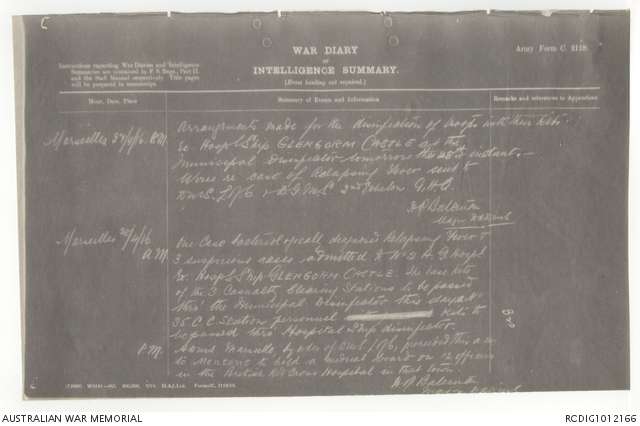 WAR DIARY
or
INTELLIGENCE SUMMARY.
(Erase heading not required.)
Army Form C. 2118.
Instructions regarding War Diaries and Intelligence
Summaries are contained in F. S. Regs., Part II.
and the Staff Manual respectively. Title pages
will be prepared in manuscript.
Hour, Date, Place
Summary of Events and Information
Remarks and references to Appendices
Marseilles P.M.
Arrangements made for the disinfection of troops with their kits
Ex Hospl Ship GLENGORM CASTLE at the
Municipal Disinfector tomorrow the 28th instant.
Wired re case of Relapsing Fever sent to
2nd Echelon G.H.Q.
Marseilles
A.M.
One Case bacteriologically diagnosed Relapsing Fever &
3 suspicious cases admitted to Hospl
Ex Hospl Ship GLENGORM CASTLE. The
of the 3 Casualty Clearing Stations to be passed
thro' the Municipal Disinfector this day
35 C.C. Station personnel kits to
be passed thro' Hospital Ship disinfector.
P.M.
Marseilles, by order of proceeded this
to Mentone to hold a medical board on 12 officers
in the British Red Cross Hospital in that town.
AUSTRALIAN WAR MEMORIAL
RCDIG1012166